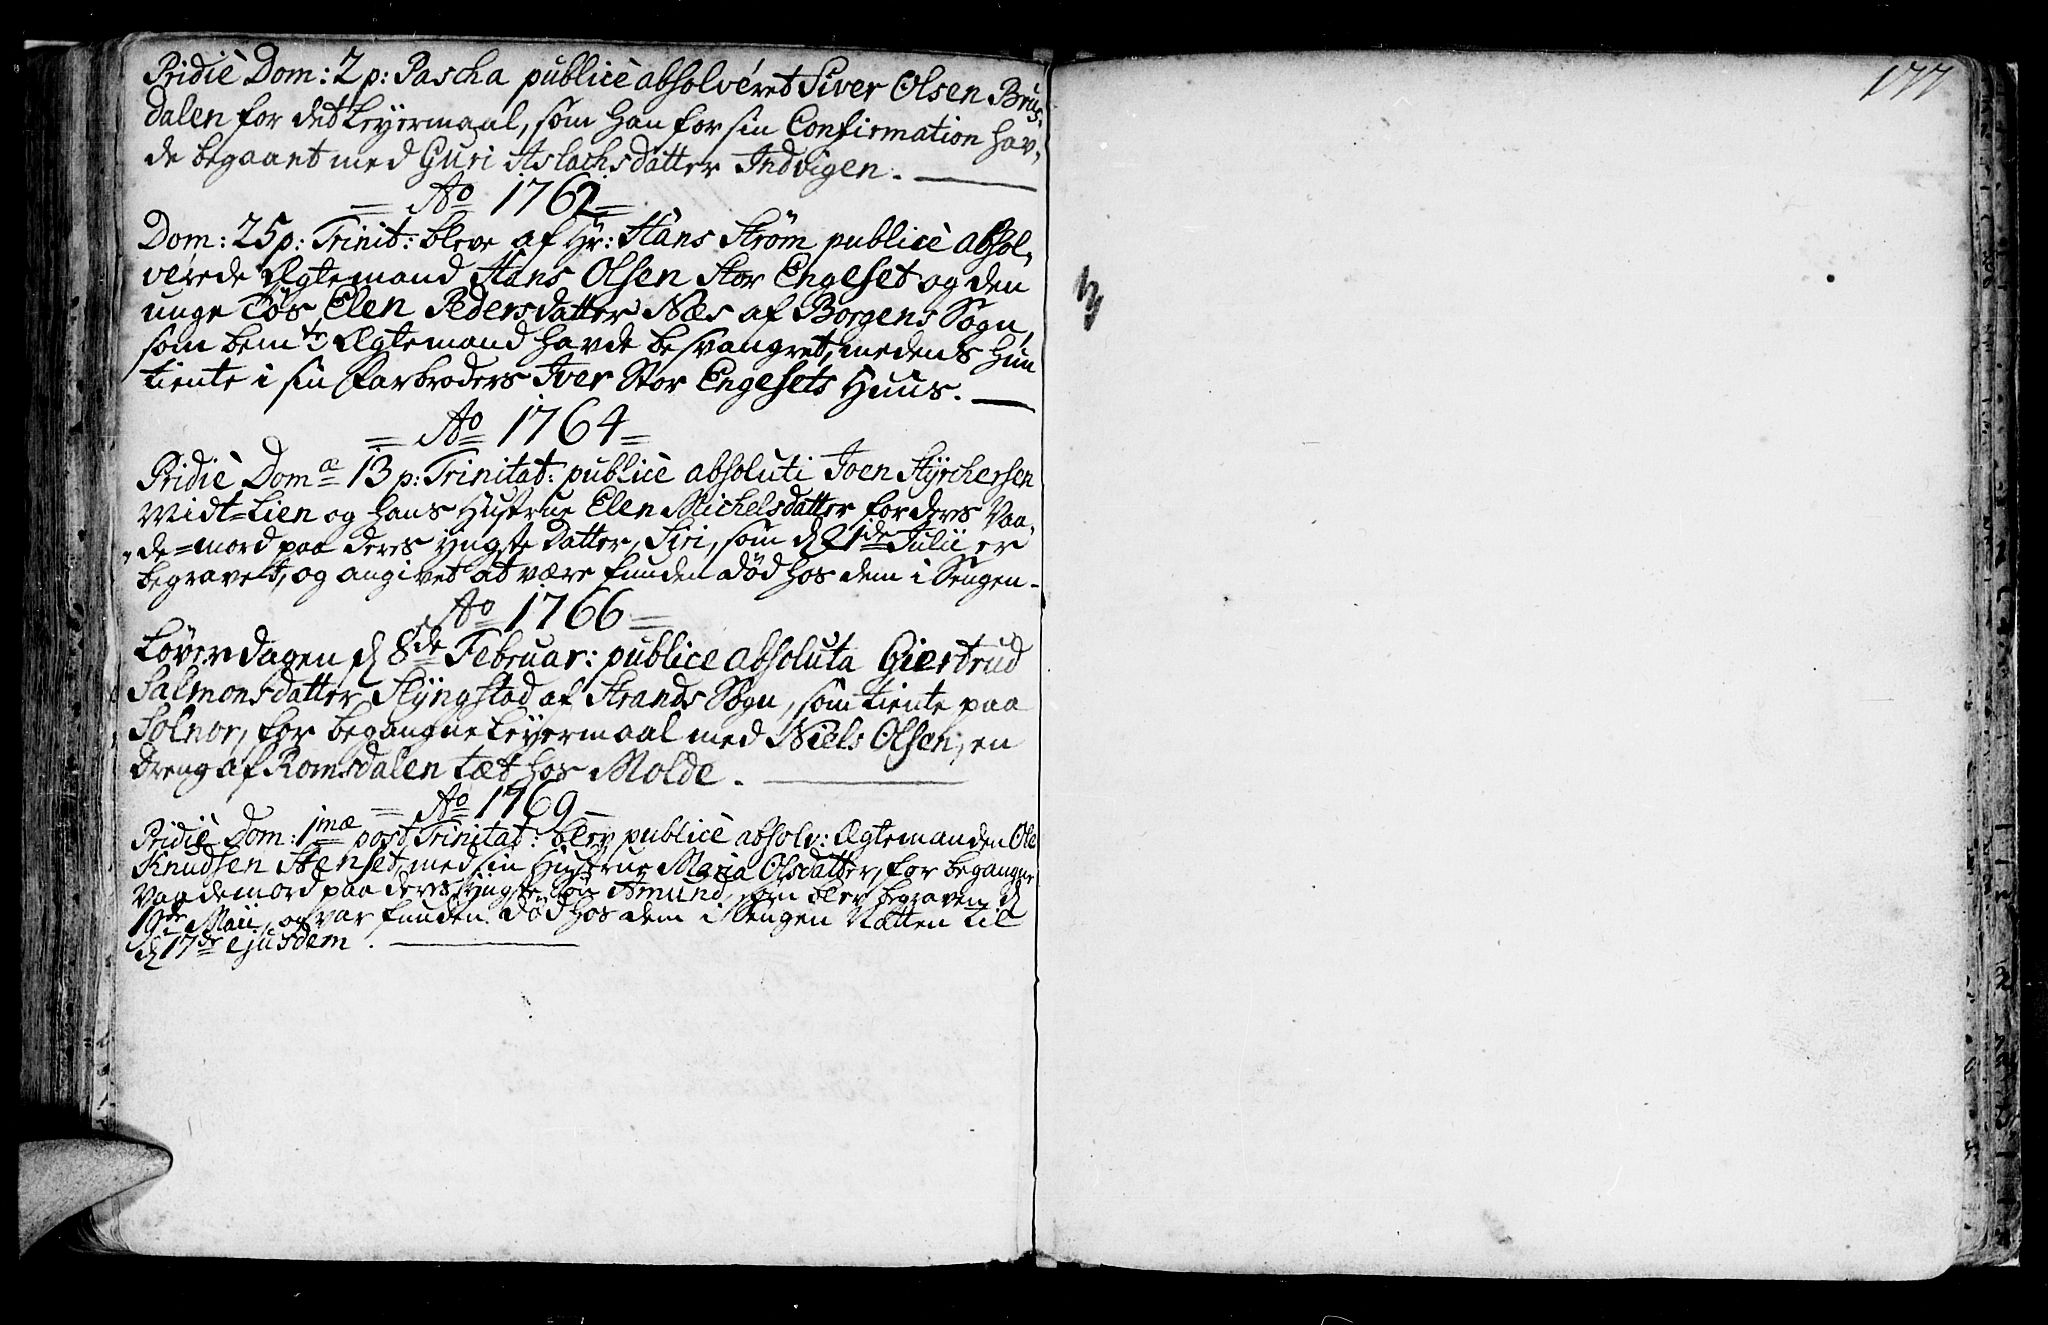 Pridiè Dom: 2 p: Pascha publicè absolveret Siver Olsen Brus-
dalen for det Leyermaal, som han for sin Confirmation hav-
de begaaet med Guri Aslachsdatter Indvigen.
= Ao 1762 =
Dom: 25 p: Trinit: bleve af Hr: Hans Strøm publicè absol-
verede Ægtemand Hans Olsen Stor Engeset og den
unge Tøs Elen Pedersdatter Næs af Borgens Sogn,
som bemte Ægtemand havde besvangret, medens hun
tiente i sin Farbroders Iver Stor Engesets Huus.
= Ao 1764 =
Pridiè Doma 13 p: Trinitat: publicè absoluti Joen Styrchersen
Midt-Lien og hans Hustrue Elen Michelsdatter for deres Vaa-
de-mord paa deres yngste Datter, Siri, som d 21de Julii er
begravet, og angivet at være funden død hos dem i Sengen.
Ao 1766 =
Løverdagen d 8de Februar: publice absoluta Giertrud
Salmonsdatter Styngstad af Strands Sogn, som tiente paa
Solnor, for begangne Leyermaal med Niels Olsen, en
Dreng af Romsdalen tæt hos Molde.
= Ao 1769 =
Pridiè Dom: 1mæ post Trinitat: blev publicè absolv: Ægtemanden Ole
Knudsen Stenset, med sin Hustrue Maria Olsdatter, for begangne
Vaademord paa deres yngste Søn Amund, som blev begraven d
19de Maii, og var funden død hos dem i Sengen Natten til
d 17de ejusdem.
177